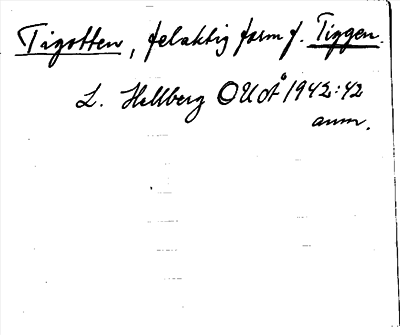 Tigotten, felaktig form f. Tiggen.
L. Hellberg OUÅ 1942:42
anm.